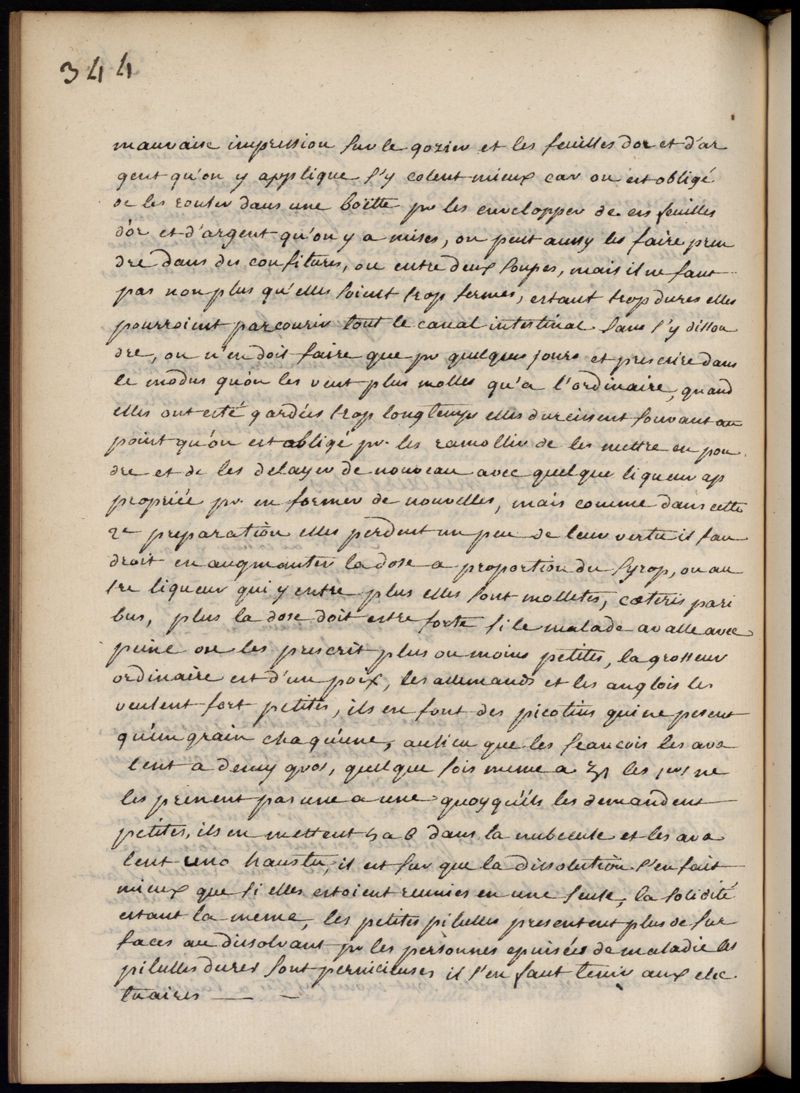 344
mauvaise impression sur le gozier et les feuilles d'or et d'ar
gent qu'on y applique s'y colent mieux car on est obligé
de les router dans une boëtte pr les envelopper de ces feuilles
d'or et d'argent qu'on y a mises, on peut aussy les faire pren
dre dans des confitures, ou entre deux soupes, mais il ne faut
pas non plus qu'elles soient trop fermes, estant trop dures elles
pourroient parcourir tout le canal intestinal sans s'y dissou
dre, on n'en doit faire que pr quelques jours et prescrire dans
le modus qu'on les veut plus molles qu'a l'ordinaire, quand
elles ont esté gardées trop longtemps elles durcissent souvant au
point qu'on est obligé pr les ramollir de les mettre en pou
dre et de les delayer de nouveau avec quelque liqueur ap
propriée pr en former de nouvelles, mais comme dans cette
2e preparation elles perdent un peu de leur vertu il fau
droit en augmanter la dose a proportion du syrop, ou au
tre liqueur qui y entre plus elles sont molletes, cæteris pari
bus, plus la dose doit estre forte si le malade avalle avec
peine on les prescrit plus ou moins petites, la grosseur
ordinaire est d'un poix, les allemands et les anglois les
veulent fort petites, ils en font des picotins qui ne pesent
qu'un grain chaqu'une, aulieu que les francois les ava
lent a demy gros, quelque fois meme a les ne
les prenent pas une a une quoyqu'ils les demandent
petites, ils en mettent 5 a 6 dans la nubecule et les ava
lent uno haustu, il est sur que la dissolution s'en fait
mieux que si elles estoient reunies en une seule, la solidité
estant la meme, les petites pilulles presentent plus de sur
faces au dissolvant pr les personnes epuisées de maladie les
pilulles dures sont pernicieuses il s'en faut tenir aux elec
tuaires